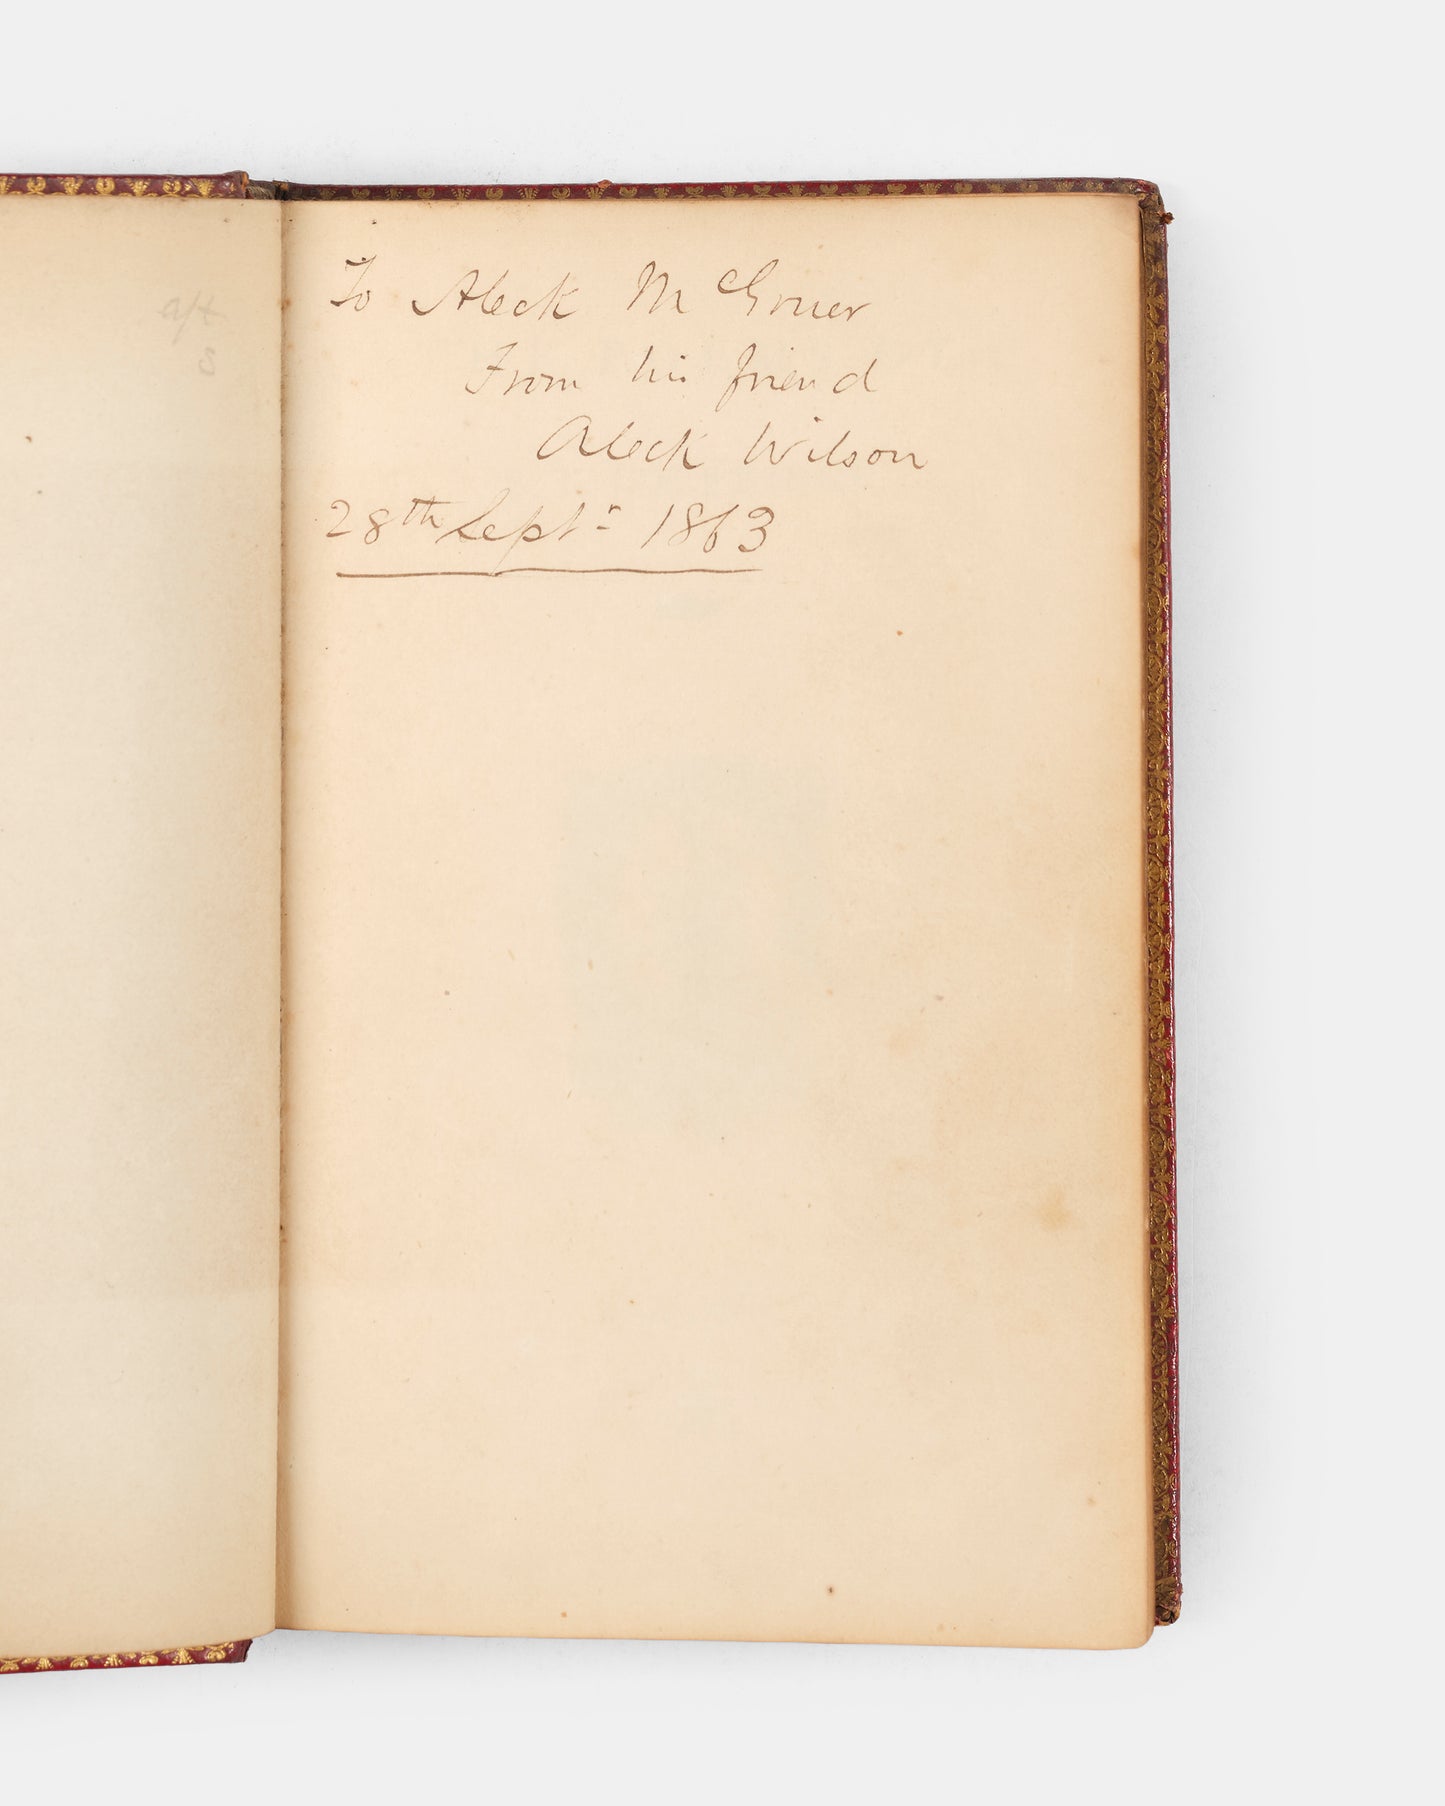 To Aleck McGruer
From his friend
Aleck Wilson
28th Sept:r 1863